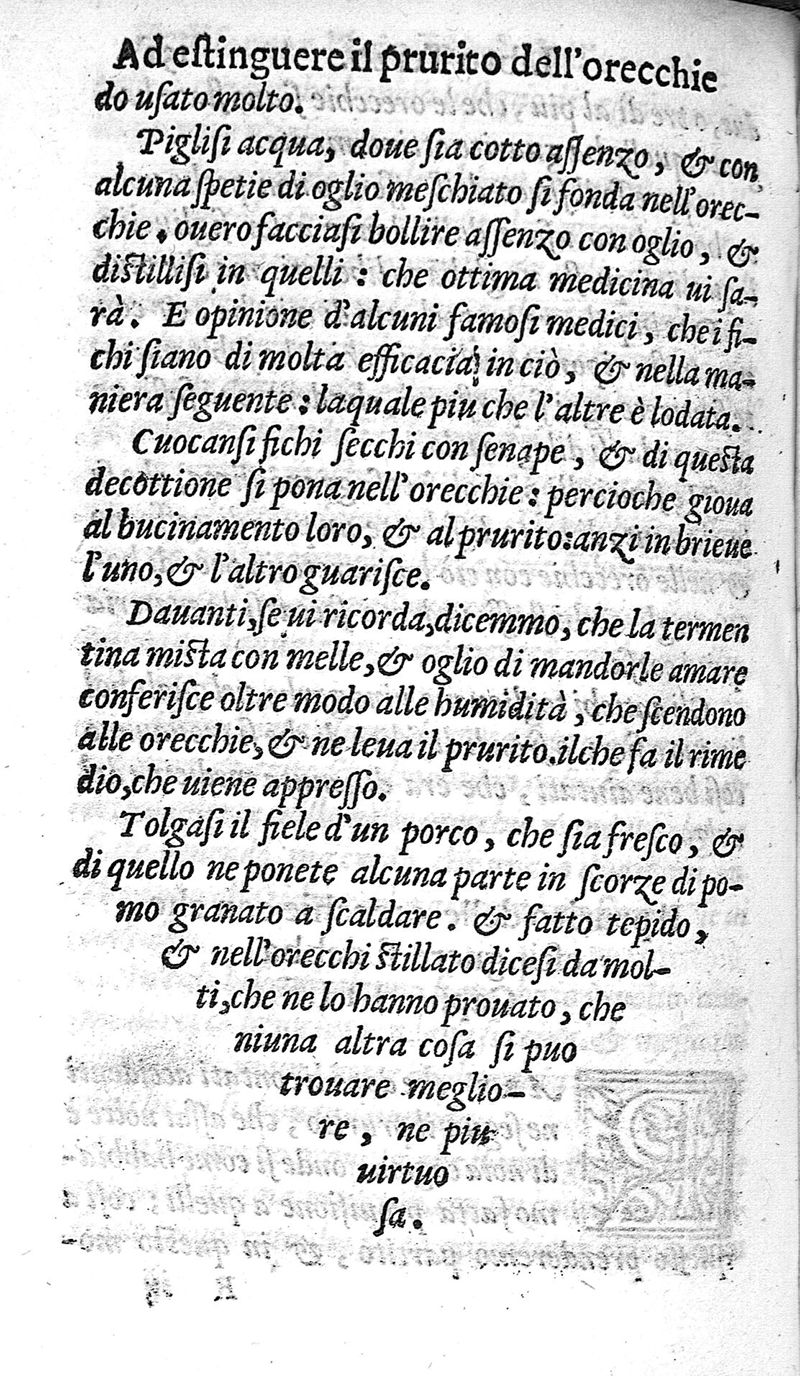 Ad eſtinguere il prurito dell'orecchie
do uſato molto.
Pigliſi acqua, doue ſia cotto aſſenzo, & con
alcuna ſpetie di oglio meſchiato ſi fonda nell'orec-
chie. ouero facciaſi bollire aſſenzo con oglio, &
diſtilliſi in quelli : che ottima medicina ui ſa-
rà. E opinione d'alcuni famoſi medici, che i fi-
chi ſiano di molta efficacia in ciò, & nella ma-
niera ſeguente : laquale piu che l'altre è lodata.
Cuocanſi fichi ſecchi con ſenape, & di queſta
decottione ſi pona nell'orecchie : percioche gioua
al bucinamento loro, & al prurito: anzi in brieue
l'uno, & l'altro guariſce.
Dauanti, ſe ui ricorda, dicemmo, che la termen
tina miſta con melle, & oglio di mandorle amare
conferiſce oltre modo alle humidità, che ſcendono
alle orecchie, & ne leua il prurito. ilche fa il rime
dio, che uiene appreſſo.
Tolgaſi il fiele d'un porco, che ſia freſco, &
di quello ne ponete alcuna parte in ſcorze di po-
mo granato a ſcaldare. & fatto tepido,
& nell'orecchi ſtillato diceſi da mol-
ti, che ne lo hanno prouato, che
niuna altra coſa ſi puo
trouare meglio-
re, ne piu
uirtuo
ſa.